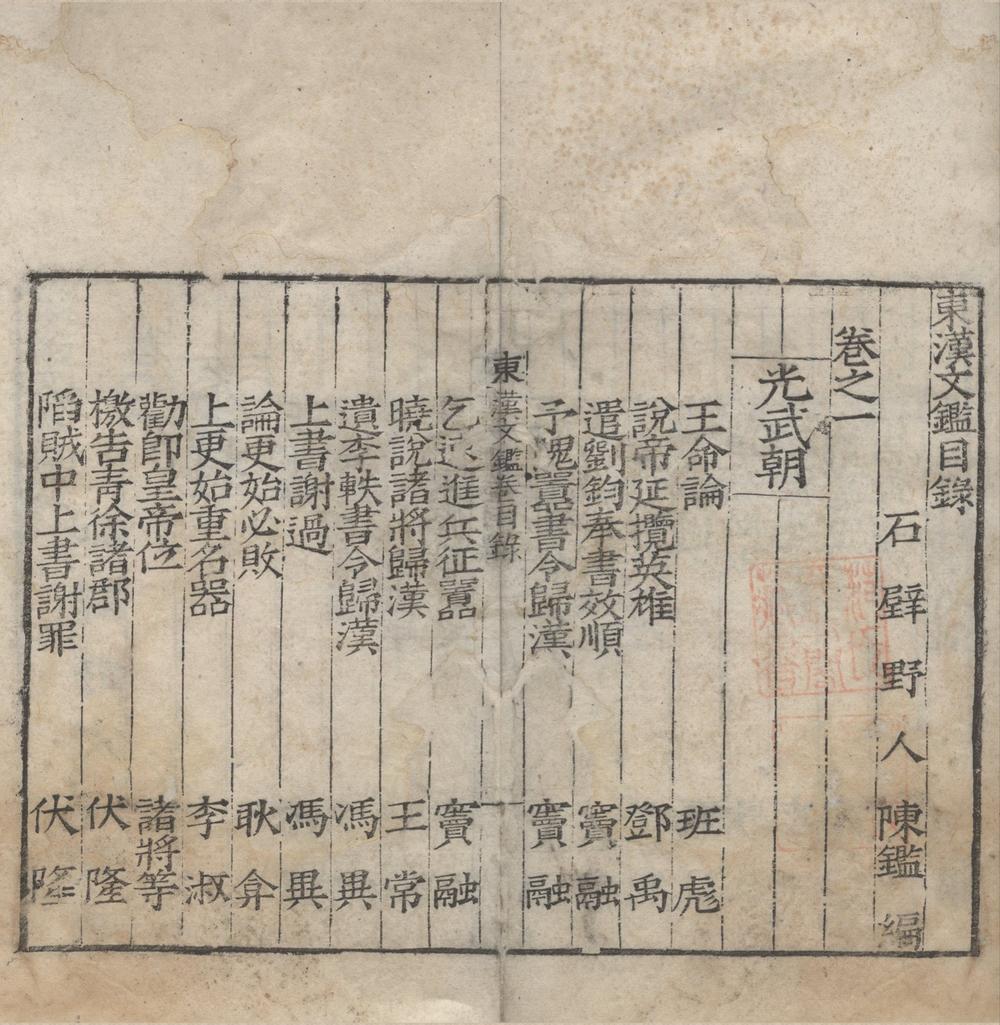 東漢文鑑目錄
石壁野人陳鑑編
卷之一
光武朝
王命論 班彪
說帝延攬英雄 鄧禹
遣劉鈞奉書效順 竇融
予隗囂書令歸漢 竇融
東漢文鑑卷目錄 一
乞速進兵征囂 竇融
曉說諸將歸漢 王常
遺李軼書令歸漢 馮異
上書謝過 馮異
論更始必敗 耿弇
上更始重名器 李淑
勸即皇帝位 諸將等
檄告青徐諸郡 伏隆
陷賊中上書謝罪 伏隆